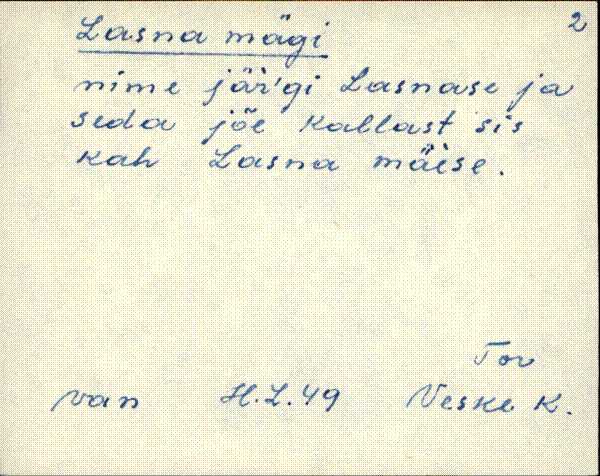 2
Lasna mägi
nime jär'gi Lasnase ja
seda jõe kallast sis
kah Lasna mäèse.
Tor
Van H.L.49 Veske K.